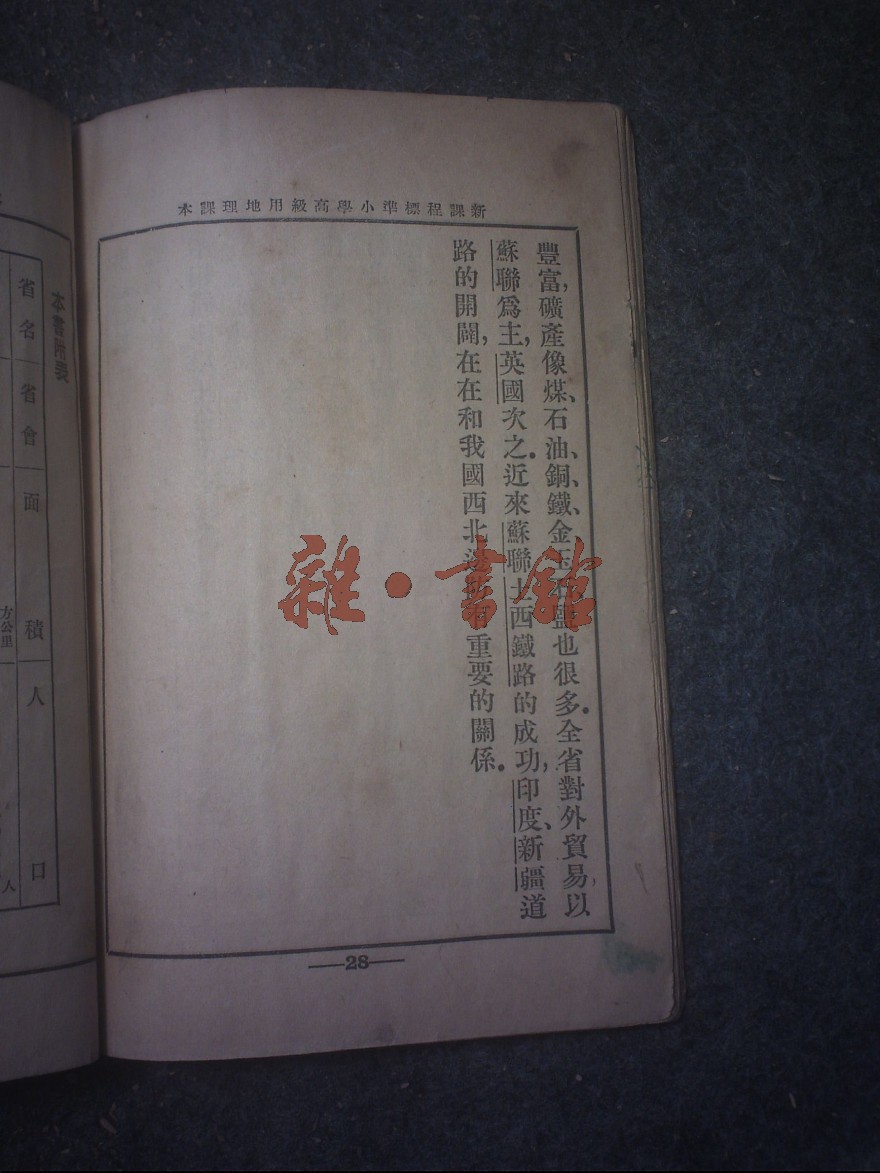 新課程標準小學高級用地理課本
豐富,礦產像煤、石油、銅、鐵、金玉石鹽也很多。全省對外貿易,以
蘇聯爲主,英國次之。近來蘇聯土西鐵路的成功,印度、新疆道
路的開闢,在在和我國西北邊防有重要的關係。
—28—
本書附表
省名
省會
面積
方公里
人口
人
雜·書館